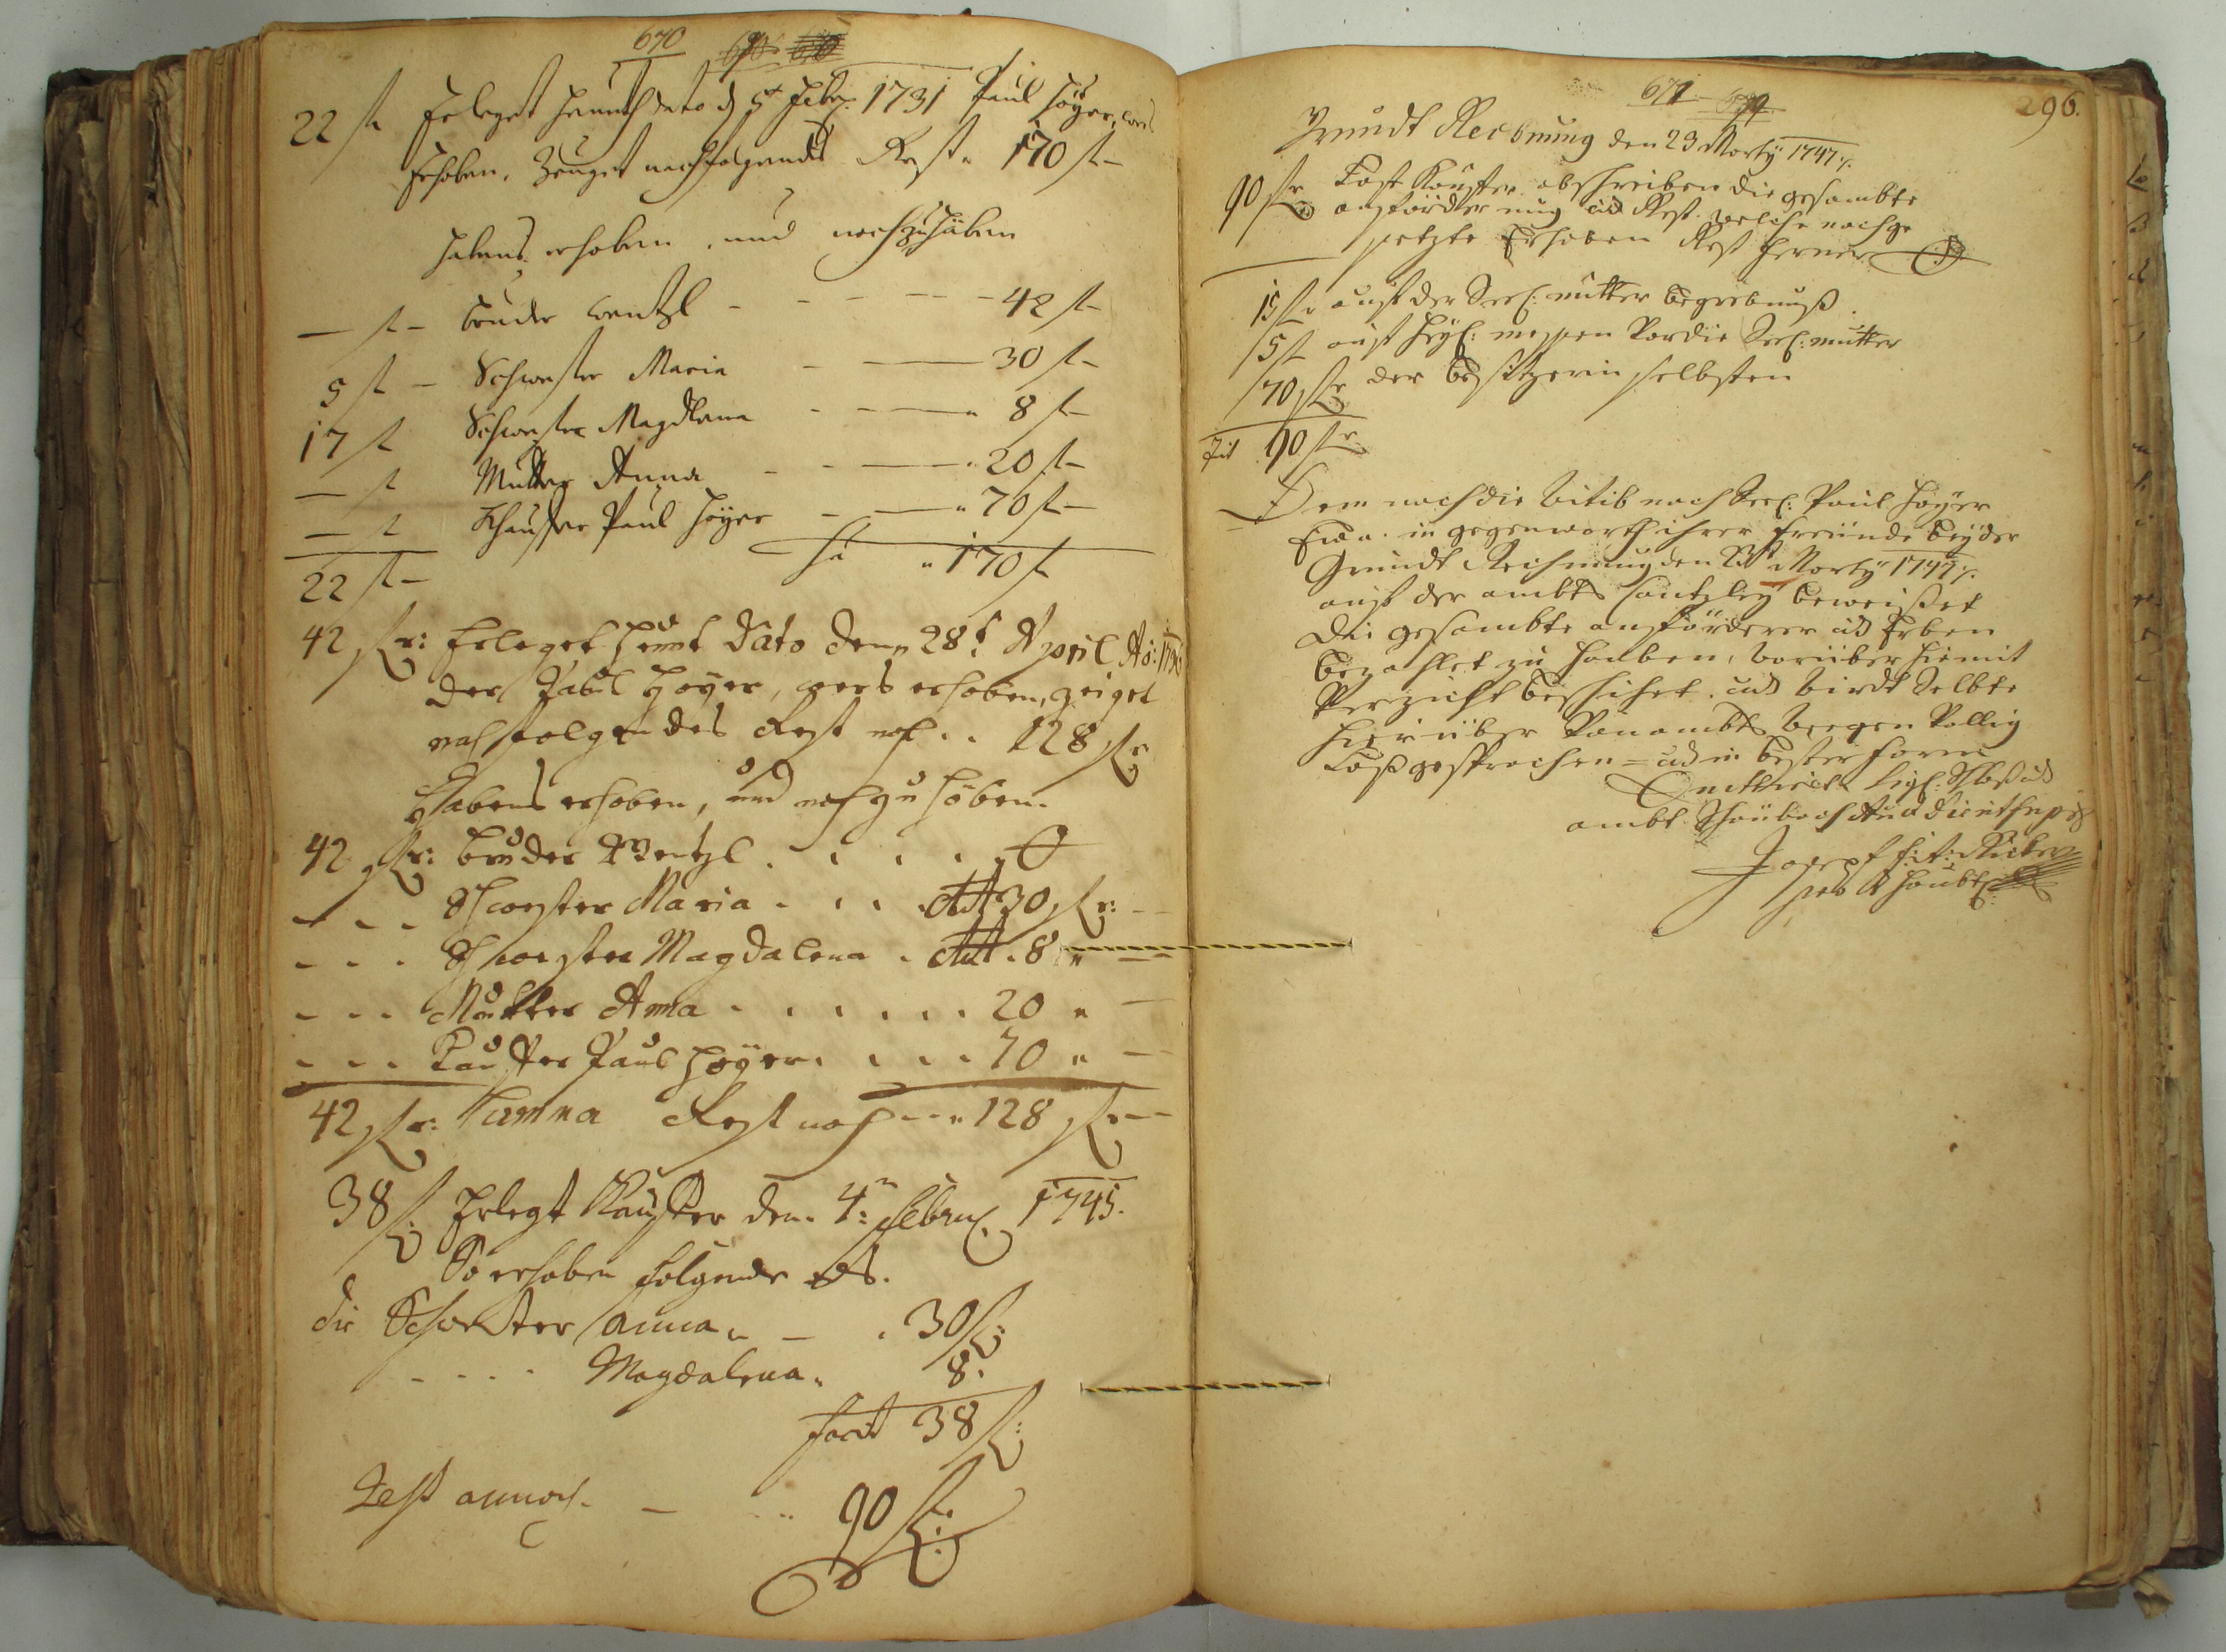 670
22 fl Erleget heunth dato d 5t Febr. 1731 Paul Höyer, wers
Erhoben, Zeuget nachfolgendes Rest " 170 fl
habens erhoben, und noch zu haben
— fl — bruder wentzl — 42 fl —
5 fl — Schwester Maria — 30 fl —
17 fl Schwester Magdlena — " 8 fl —
— fl Mutter Anna — " 20 fl —
— fl Khauffer Paul Höyer — " 70 fl —
22 fl — Sa " 170 fl
42 flr: Erleget Heunt Dato den 28t April Ao:
der Paul Hoyer, wers erhoben, zeiget
nachfolgendes Rest noch .. 128 flr
Habens erhoben, und noch zu höben.
42 flr: bruder Wentzl . . . . 0
- - - Schwester Maria . . . 30 flr: —
- - - Schwester Magdalena . 8 " —
- - - Mutter Anna . . . . . . 20 " —
- - - Kauffer Paul Hoyer . . . . 70 " —
42 flr: Summa Rest noch - - " 128 flr —
38 fl: Erlegt Kauffer den 4: Febru. 1745.
So erhoben folgende als.
die Schwester Anna " — . 30 fl:
- - - - Magdalena " 8.
facit 38 fl:
Rest annoch — .. 90 fl:
671
296.
Grundt Rechnung den 23 Marty 1747
90 flr Last Kauffer abschreiben die gesambte
anforderung und Rest. welche nachge
setzte Erhoben Rest ferner 0
15 flr auff der Seel: mutter begrebnuß.
5 fl auff Heyl: messen Vor die Seel: mutter
70 flr der besitzerin selbsten
Fit 90 flr.
Dem nach die Witib nach Seel: Paul Hoyer
Eva. in gegenwarth ihrer freünde beyder
Grundt Rechnung den 23t Marty 1747.
auß der ambts Cantzley beweißet
die gesambte anforderer und Erben
bezahlet zu haben, worüber hiemit
Verzicht beschihet. und wirdt Selbte
hierüber Von ambts weegen Vollig
Loßgesprochen = und in bester form
quittiert
ambt Schönbach
Joseph